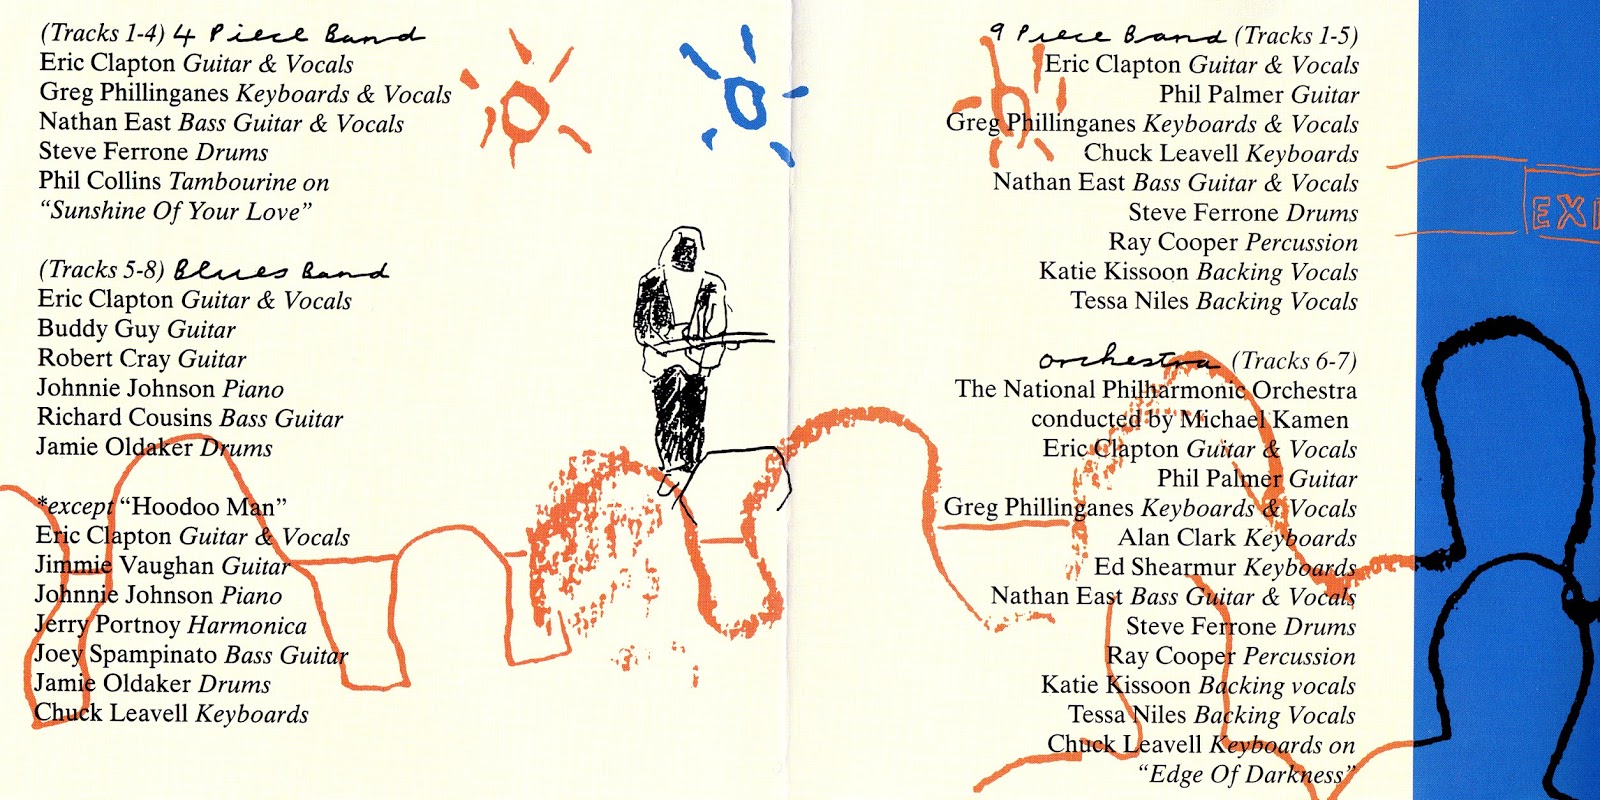 (Tracks 1-4) 4 Piece Band
Eric Clapton Guitar & Vocals
Greg Phillinganes Keyboards & Vocals
Nathan East Bass Guitar & Vocals
Steve Ferrone Drums
Phil Collins Tambourine on
“Sunshine Of Your Love”
(Tracks 5-8) Blues Band
Eric Clapton Guitar & Vocals
Buddy Guy Guitar
Robert Cray Guitar
Johnnie Johnson Piano
Richard Cousins Bass Guitar
Jamie Oldaker Drums
*except “Hoodoo Man”
Eric Clapton Guitar & Vocals
Jimmie Vaughan Guitar
Johnnie Johnson Piano
Jerry Portnoy Harmonica
Joey Spampinato Bass Guitar
Jamie Oldaker Drums
Chuck Leavell Keyboards
9 Piece Band (Tracks 1-5)
Eric Clapton Guitar & Vocals
Phil Palmer Guitar
Greg Phillinganes Keyboards & Vocals
Chuck Leavell Keyboards
Nathan East Bass Guitar & Vocals
Steve Ferrone Drums
Ray Cooper Percussion
Katie Kissoon Backing Vocals
Tessa Niles Backing Vocals
orchestra (Tracks 6-7)
The National Philharmonic Orchestra
conducted by Michael Kamen
Eric Clapton Guitar & Vocals
Phil Palmer Guitar
Greg Phillinganes Keyboards & Vocals
Alan Clark Keyboards
Ed Shearmur Keyboards
Nathan East Bass Guitar & Vocals
Steve Ferrone Drums
Ray Cooper Percussion
Katie Kissoon Backing vocals
Tessa Niles Backing Vocals
Chuck Leavell Keyboards on
“Edge Of Darkness”